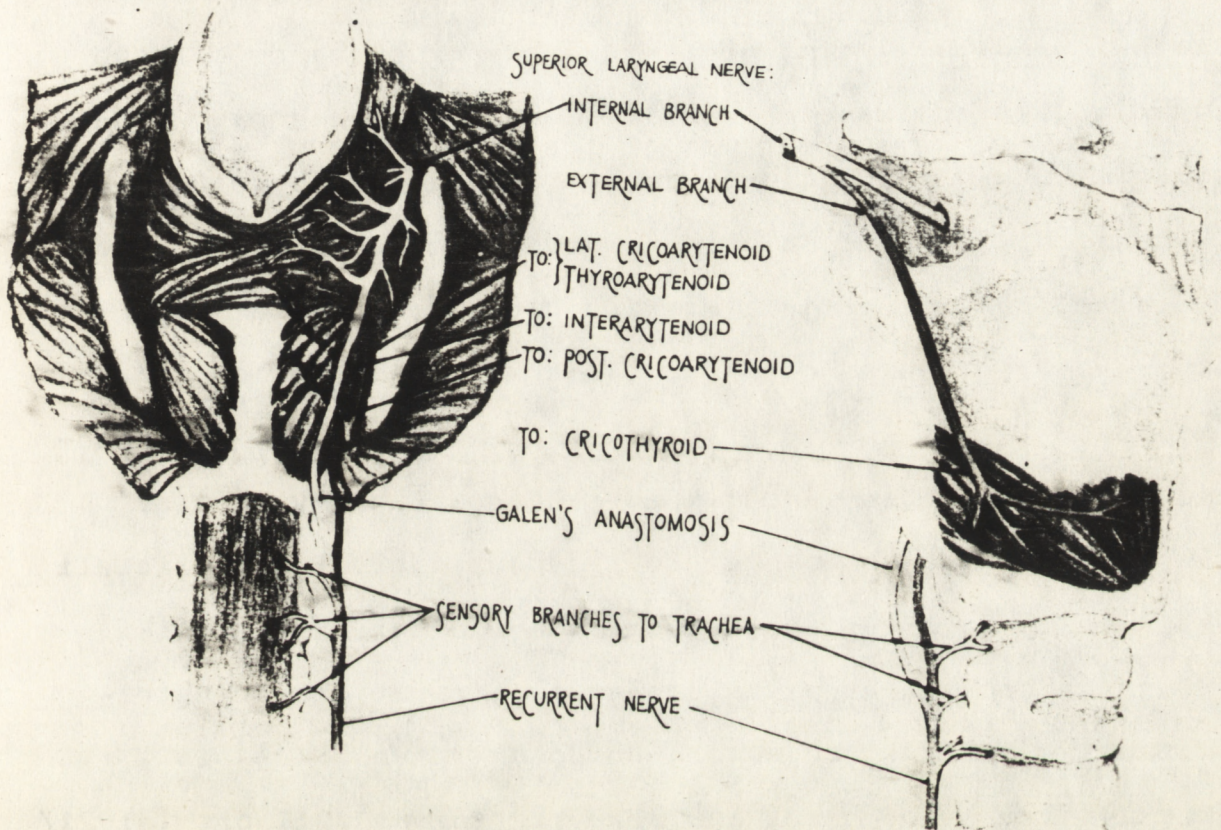 SUPERIOR LARYNGEAL NERVE:
INTERNAL BRANCH
EXTERNAL BRANCH
TO: } LAT. CRICOARYTENOID
THYROARYTENOID
TO: INTERARYTENOID
TO: POST. CRICOARYTENOID
TO: CRICOTHYROID
GALEN'S ANASTOMOSIS
SENSORY BRANCHES TO TRACHEA
RECURRENT NERVE